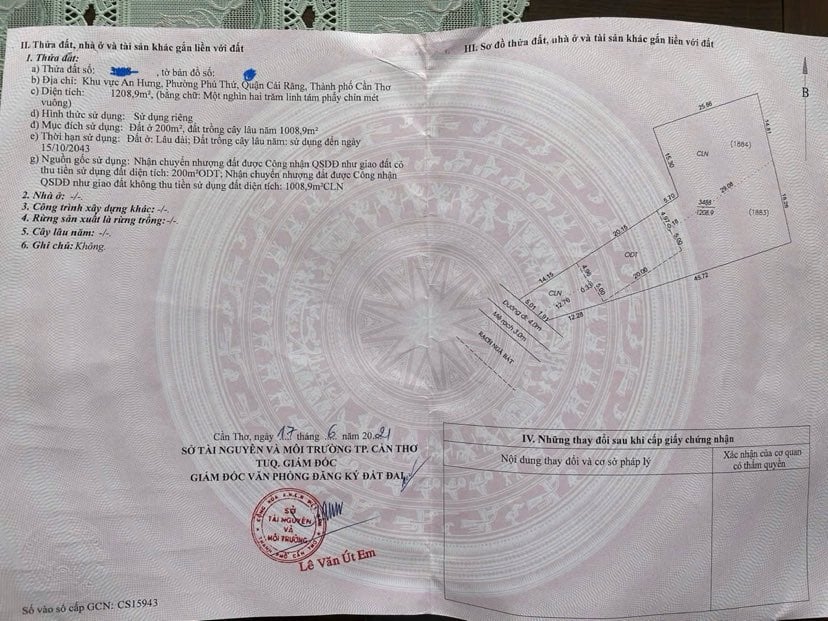 II. Thửa đất, nhà ở và tài sản khác gắn liền với đất
1. Thửa đất:
a) Thửa đất số: , tờ bản đồ số:
b) Địa chỉ: Khu vực An Hưng, Phường Phú Thứ, Quận Cái Răng, Thành phố Cần Thơ
c) Diện tích: 1208,9m², (bằng chữ: Một nghìn hai trăm linh tám phẩy chín mét
vuông)
d) Hình thức sử dụng: Sử dụng riêng
đ) Mục đích sử dụng: Đất ở 200m², đất trồng cây lâu năm 1008,9m²
e) Thời hạn sử dụng: Đất ở: Lâu dài; Đất trồng cây lâu năm: sử dụng đến ngày
15/10/2043
g) Nguồn gốc sử dụng: Nhận chuyển nhượng đất được Công nhận QSDĐ như giao đất có
thu tiền sử dụng đất diện tích: 200m²ODT; Nhận chuyển nhượng đất được Công nhận
QSDĐ như giao đất không thu tiền sử dụng đất diện tích: 1008,9m²CLN
2. Nhà ở: -/-.
3. Công trình xây dựng khác: -/-.
4. Rừng sản xuất là rừng trồng: -/-.
5. Cây lâu năm: -/-.
6. Ghi chú: Không.
Cần Thơ, ngày 17 tháng 6 năm 2021
SỞ TÀI NGUYÊN VÀ MÔI TRƯỜNG TP. CẦN THƠ
TUQ. GIÁM ĐỐC
GIÁM ĐỐC VĂN PHÒNG ĐĂNG KÝ ĐẤT ĐAI
SỞ
TÀI NGUYÊN
VÀ
MÔI TRƯỜNG
THÀNH PHỐ CẦN THƠ
Lê Văn Út Em
Số vào sổ cấp GCN: CS15943
III. Sơ đồ thửa đất, nhà ở và tài sản khác gắn liền với đất
B
25.86
14.81
CLN
(1884)
15.30
29.08
5.70
3458
1208.9
(1883)
18.28
20.15
4.97
5.00
ODT
14.15
4.96
20.00
45.72
CLN
0.33
5.00
5.01
1.91
12.76
12.28
Đường đi 4.0m
Mé rạch 3.0m
RẠCH NGÃ BÁT
IV. Những thay đổi sau khi cấp giấy chứng nhận
Nội dung thay đổi và cơ sở pháp lý
Xác nhận của cơ quan
có thẩm quyền